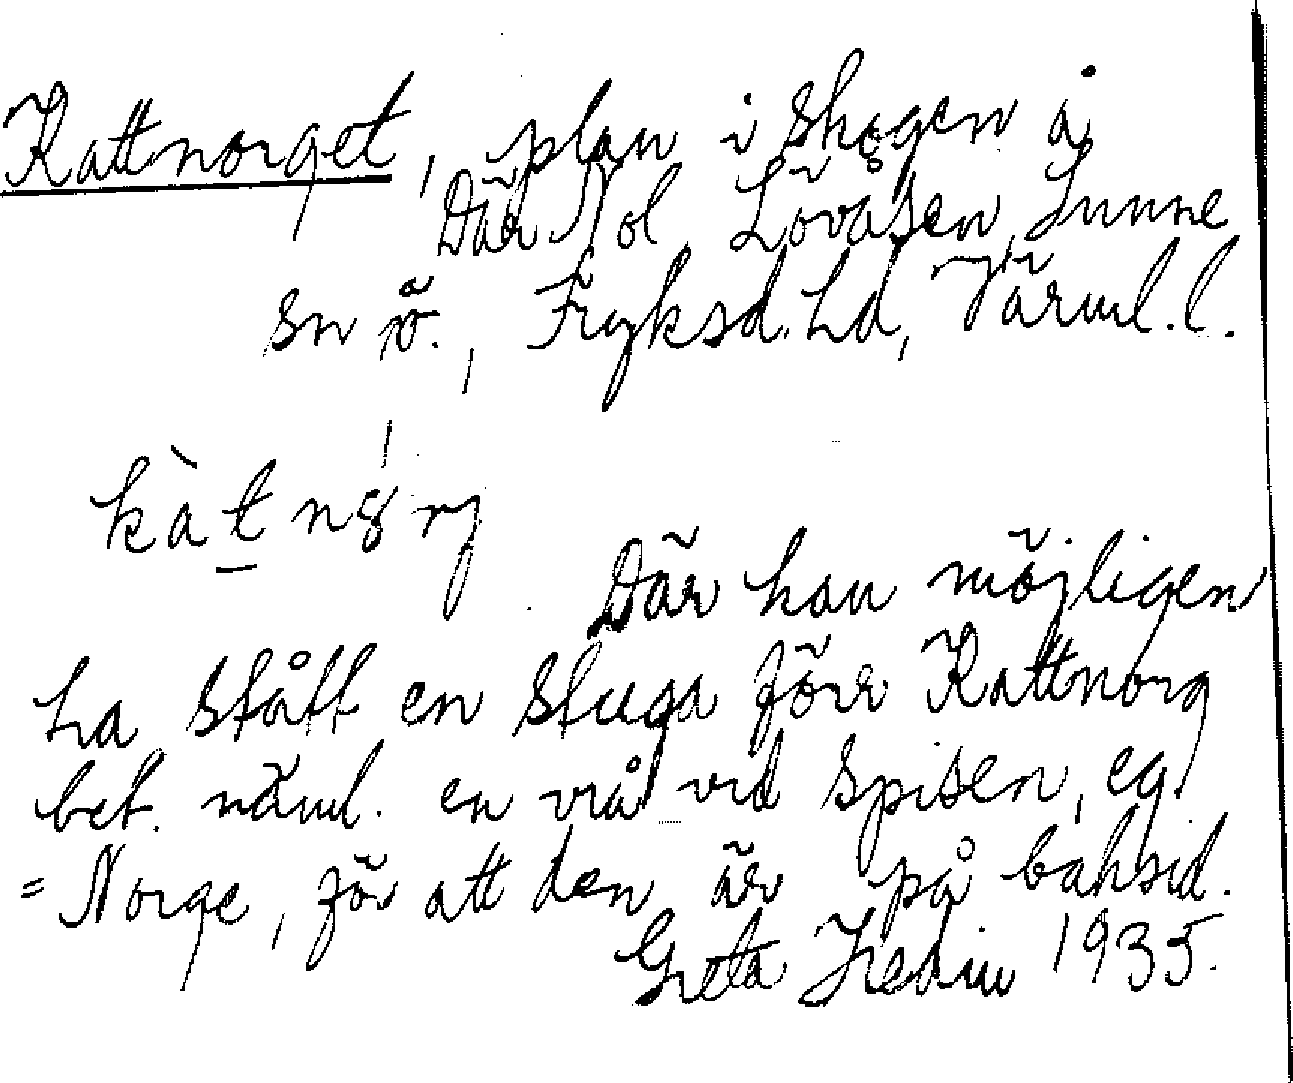 Kattnorget, plan i skogen å
Där Nol Lövåsen, Sunne
sn ö., Fryksd. hd, Värml. l.
kàtnórj
Där kan möjligen
ha stått en stuga förr Kattnorg
bet. näml. en vrå vid spisen, eg
= Norge, för att den är på baksid.
Greta Hedin 1935.